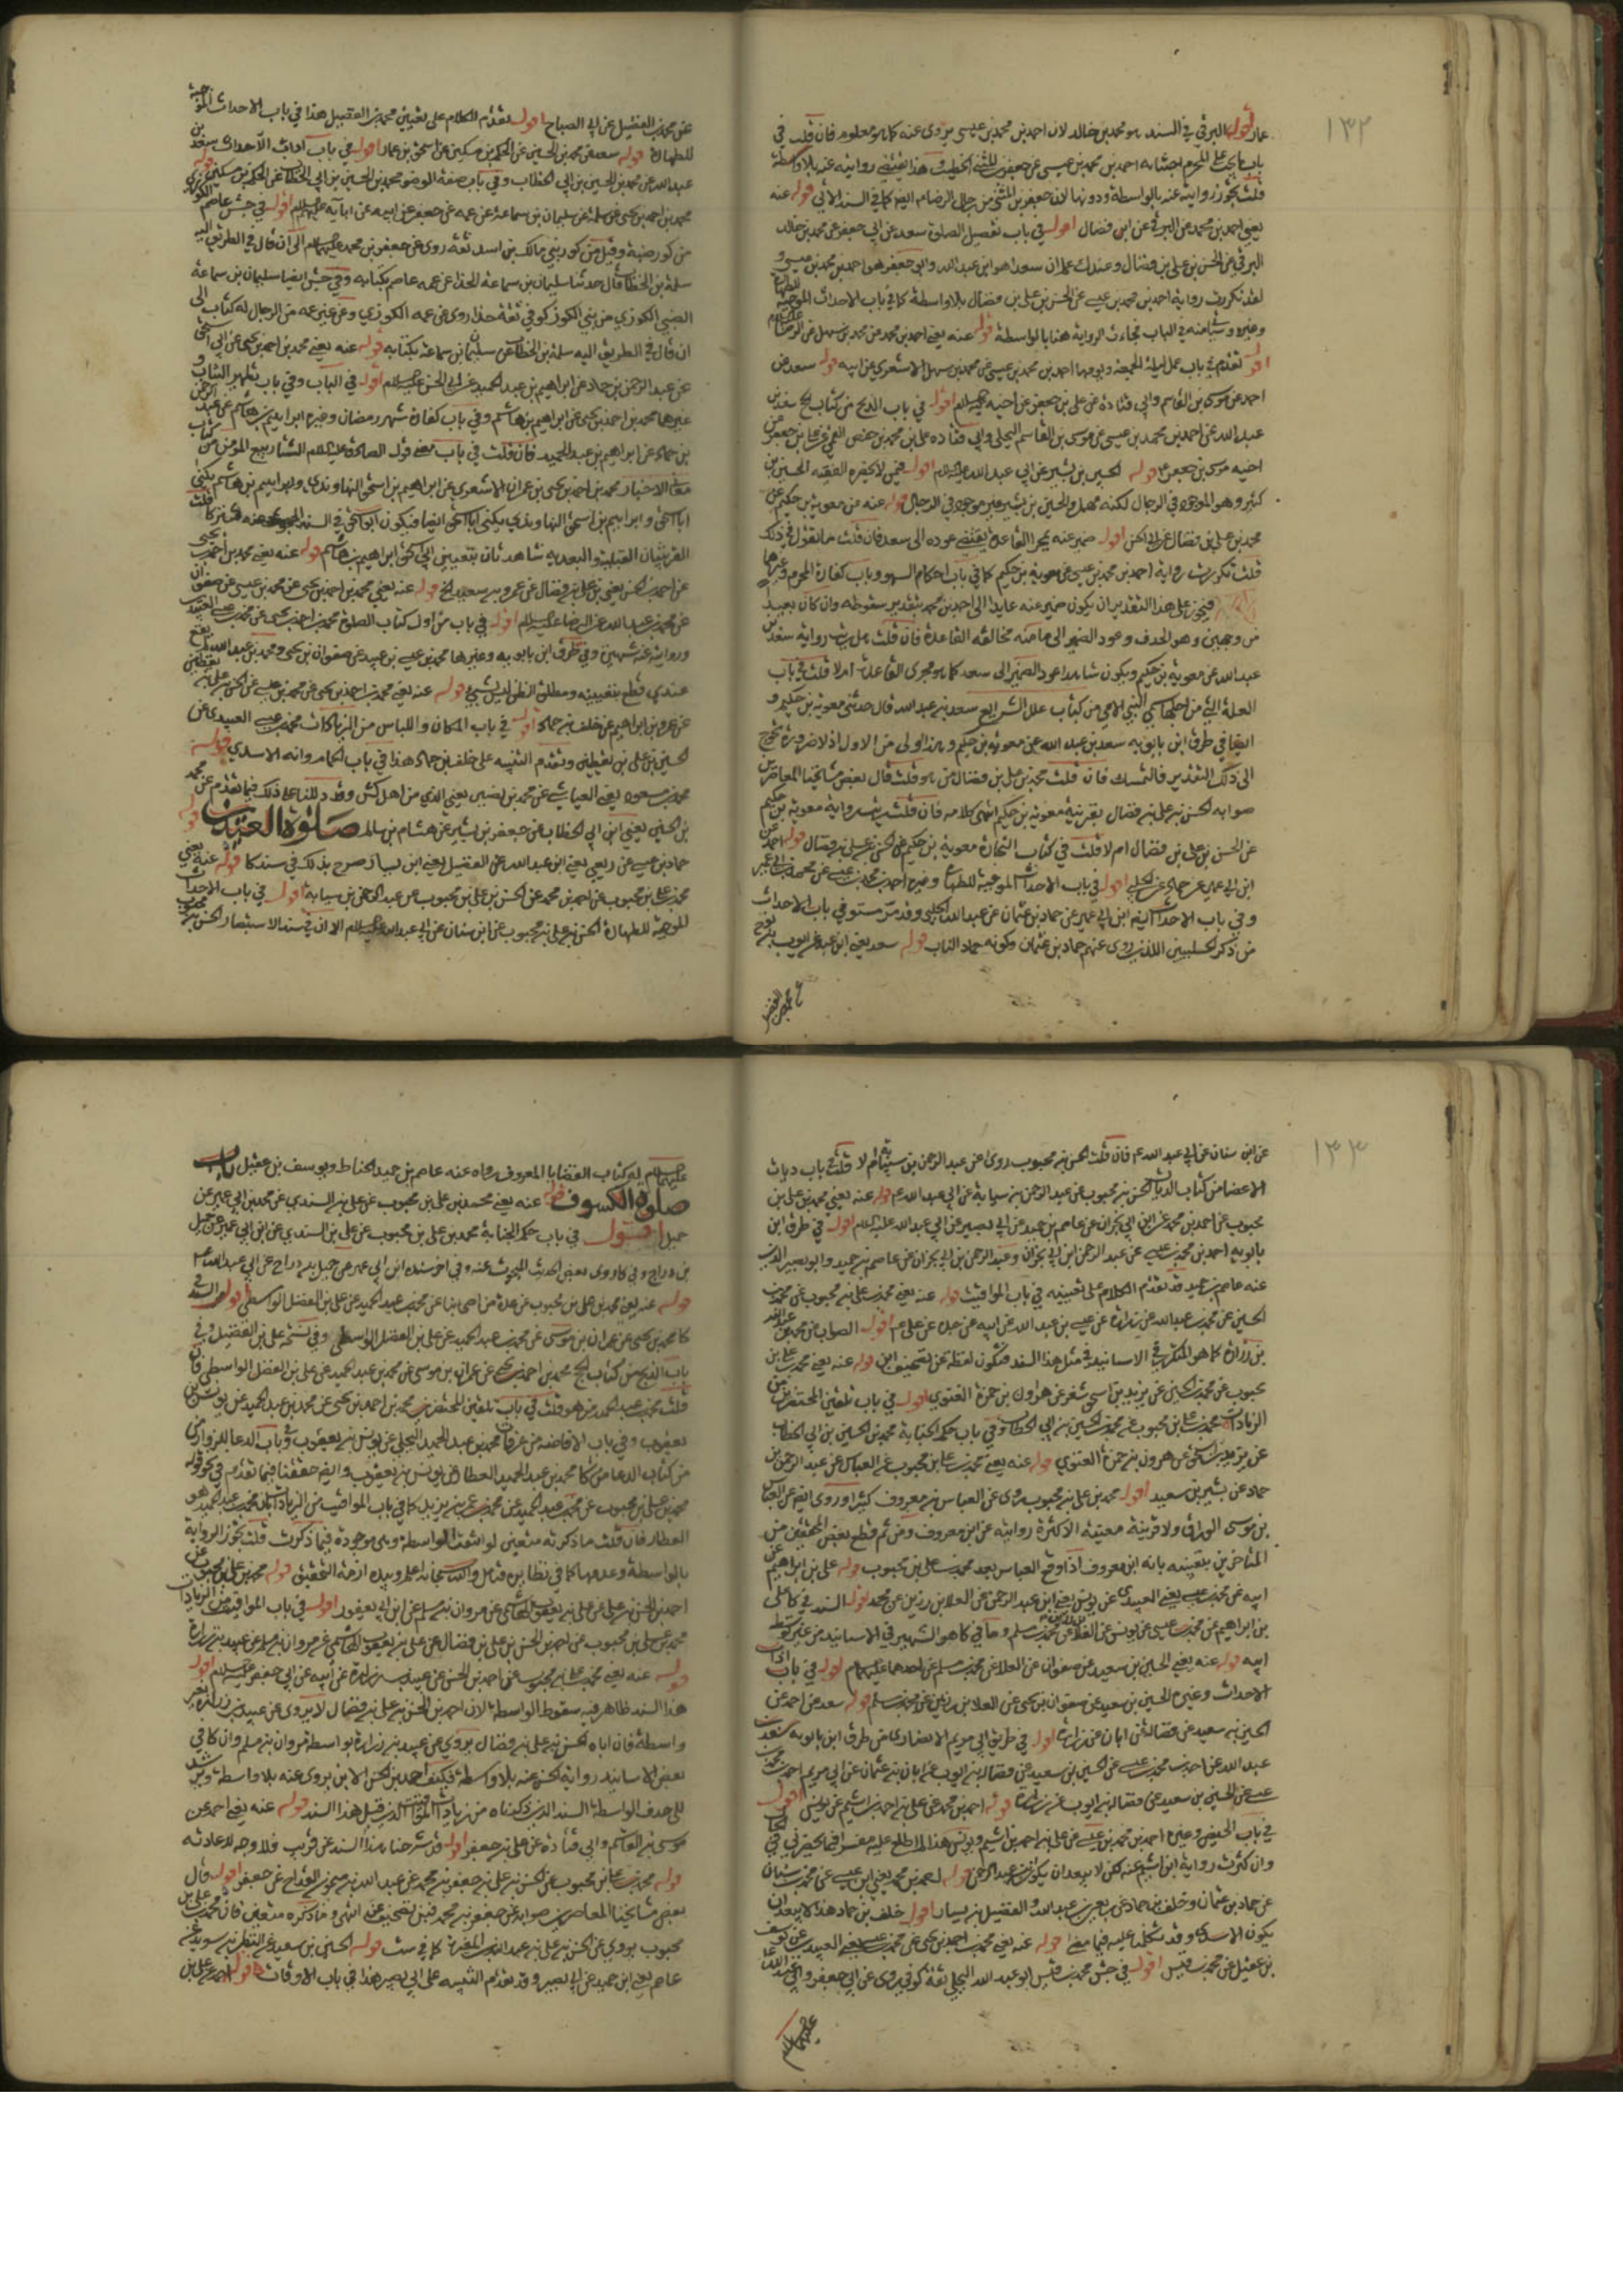 ١٣٢
عمار اقول البرقي في السند هو محمد بن خالد لان احمد بن محمد بن عيسى يروي عنه كما هو معلوم فان قلت في
باب ما يجب على المحرم اجتنابه احمد بن محمد بن عيسى عن جعفر بن المثنى الخطيب وهذا يقتضي روايته عنه بلا واسطة
قلت يجوز روايته عنه بالواسطة ودونها لان جعفر بن المثنى من رجال الرضا ايضا كما في السند الآتي قوله عنه
يعني احمد بن محمد عن البرقي عن ابن فضال اقول في باب تفصيل الصلوة سعد عن ابي جعفر عن محمد بن خالد
البرقي عن الحسن بن علي بن فضال وعندك علم ان سعدا هو ابن عبد الله وابي جعفر هو احمد بن محمد بن عيسى و
لقد تكررت رواية احمد بن محمد بن عيسى عن الحسن بن علي بن فضال بلا واسطة كما في باب الاحداث الموجبة للطهارة
وغيره في الباب فجازت الرواية هنا بالواسطة قوله عنه يعني احمد بن محمد عن محمد بن سهل عن الرضا
اقول تقدم في باب عمل ليلة الجمعة ويومها احمد بن محمد بن عيسى عن محمد بن سهل الاشعري عن ابيه قوله سعد عن
احمد عن موسى بن القاسم وابي قتادة عن علي بن جعفر عن اخيه عليه السلام اقول في باب الذبح من كتاب الحج سعد بن
عبد الله عن احمد بن محمد بن عيسى عن موسى بن القاسم البجلي وابي قتادة علي بن محمد بن حفص القمي عن علي بن جعفر عن
اخيه موسى بن جعفر قوله الحسين بن بشير عن ابي عبد الله عليه السلام اقول
كثير وهو الموجود في الرجال لكنه مهمل والحسين بن بشير غير موجود في الرجال قوله عنه عن معوية بن حكيم عن
محمد بن علي بن فضال عن ابي الحسن اقول ضمير عنه بمجرى القاعدة يقتضي عوده الى سعد فان قلت ما تقول في ذلك
قلت تكررت رواية احمد بن محمد بن عيسى عن معوية بن حكيم كما في باب احكام السهو وباب كفارة المحرم وغيرها
على هذا التقدير ان يكون ضمير عنه عايدا الى احمد بن محمد بتقدير سقوطه وان كان بعيدا
من وجهين وهو الحذف وعود الضمير الى ما منه مخالفة القاعدة فان قلت هل رواية سعد بن
عبد الله عن معوية بن حكيم ويكون شاهدا عود الضمير الى سعد كما هو مجرى القاعدة ام لا قلت في باب
العلة التي من اجلها سمي النبي الامي من كتاب علل الشرايع سعد بن عبد الله قال حدثني معوية بن حكيم و
ايضا في طرق ابن بابويه سعد بن عبد الله عن معوية بن حكيم وهذا اولى من الاول اذ لا ضرورة تحوج
الى ذلك التقدير فالتمسك فان قلت محمد بن علي بن فضال من هو قلت قال بعض مشايخنا المعاصرين
صوابه الحسن بن علي بن فضال بقرينة معوية بن حكيم انتهى كلامه فان قلت رواية معوية بن حكيم
عن الحسن بن علي بن فضال ام لا قلت في كتاب التجارة معوية بن حكيم عن الحسن بن علي بن فضال قوله احمد عن
ابن ابي عمير عن حماد عن الحلبي اقول في باب الاحداث الموجبة للطهارة وغيره احمد بن محمد بن عيسى عن محمد بن ابي عمير
وفي باب الاحداث ايضا ابن ابي عمير عن حماد بن عثمان عن عبد الله الحلبي وقد مر مستوفى في باب الاحداث
من ذكر الحلبيين اللذين روى عنهم حماد بن عثمان وكونه حماد الناب قوله سعد يعني ابن عبد الله عن ايوب بن نوح
عن محمد بن الفضيل
عن محمد بن الفضيل عن ابي الصباح اقول تقدم الكلام على تعيين محمد بن الفضيل هذا في باب الاحداث الموجبة
للطهارة قوله سعد عن محمد بن الحسين عن الحكم بن مسكين عن اسحق بن عمار اقول في باب آداب الاحداث سعد بن
عبد الله عن محمد بن الحسين بن ابي الخطاب وفي باب صفة الوضوء محمد بن الحسين بن ابي الخطاب عن الحكم بن مسكين قوله
محمد بن احمد بن يحيى عن سلمة عن سليمان بن سماعة عن عمه عن جعفر عن ابيه عن ابائه عليهم السلام اقول في جش عاصم الكوزي
من كور ضبة وقيل من كور بني مالك بن اسد ثقة روى عن جعفر بن محمد عليهما السلام الى ان قال في الطريق اليه
سلمة بن الخطاب قال حدثنا سليمان بن سماعة الحذاء عن عمه عاصم بكتابه وفي جش ايضا سليمان بن سماعة
الضبي الكوزي من بني الكوز كوفي ثقة حذاء روى عن عمه الكوزي وعن غير عمه من الرجال له كتاب الى
ان قال في الطريق اليه سلمة بن الخطاب عن سليمان بن سماعة بكتابه قوله عنه يعني محمد بن احمد بن يحيى عن ابي اسحق
عن عبد الرحمن بن حماد عن ابراهيم بن عبد الحميد عن ابي الحسن عليه السلام اقول في الباب وفي باب تطهير الثياب و
غيرهما محمد بن احمد بن يحيى عن ابراهيم بن هاشم وفي باب كفارة شهر رمضان وغيره ابراهيم بن هاشم عن عبد الرحمن
بن حماد عن ابراهيم بن عبد الحميد فان قلت في باب معنى قول الصادق عليه السلام الشتاء ربيع المؤمن من كتاب
معاني الاخبار محمد بن احمد بن يحيى بن عمران الاشعري عن ابراهيم بن اسحق النهاوندي وابراهيم بن هاشم يكنى
ابا اسحق وابراهيم بن اسحق النهاوندي يكنى ابا اسحق ايضا فيكون ابو اسحق في السند
القرينتان القبلية والبعدية شاهدتان بتعيين ابي اسحق ابراهيم بن هاشم قوله عنه يعني محمد بن احمد بن يحيى
عن احمد بن الحسن يعني بن علي بن فضال عن عمرو بن سعيد الخ قوله عنه يعني محمد بن احمد بن يحيى عن محمد بن عيسى عن صفوان
عن محمد بن عبد الله عن الرضا عليه السلام اقول في باب من اول كتاب الصلوة محمد بن احمد بن يحيى عن محمد بن عيسى العبيدي
وروايته عنه شهيرة وفي طرق ابن بابويه وغيرها محمد بن عيسى بن عبيد عن صفوان بن يحيى ومحمد بن عبد الله
عندي قطع بتعيينه ومطلق الظن ليس بشئ قوله عنه يعني محمد بن احمد بن يحيى عن محمد بن عيسى عن الحسن بن علي بن يقطين
عن عمرو بن ابراهيم عن خلف بن حماد اقول في باب المكان واللباس من الزيادات محمد بن عيسى العبيدي عن
الحسين بن علي بن يقطين وتقدم التنبيه على خلف بن حماد هذا في باب الحمام وانه الاسدي قوله
محمد بن مسعود يعني العياشي عن محمد بن نصير يعني الذي من اهل كش وقد دللنا على ذلك فيما تقدم عن محمد
بن الحسين يعني ابن ابي الخطاب عن جعفر بن بشير عن هشام بن سالم صلوة العيدين قوله
حماد بن عيسى عن ربعي يعني ابن عبد الله عن الفضيل يعني ابن يسار صرح بذلك في سند كا قوله عنه يعني
محمد بن علي بن محبوب عن احمد بن محمد عن الحسن بن علي بن محبوب عن عبد الرحمن بن سيابة اقول في باب الاحداث
الموجبة للطهارة الحسن بن علي بن محبوب عن ابن سنان عن ابي عبد الله عليه السلام الا ان في سند الاستبصار الحسن بن محبوب
١٣٣
عن ابن سنان عن ابي عبد الله ع فان قلت الحسن بن محبوب روى عن عبد الرحمن بن سيابة ام لا قلت في باب ديات
الاعضاء من كتاب الديات الحسن بن محبوب عن عبد الرحمن بن سيابة عن ابي عبد الله ع قوله عنه يعني محمد بن علي بن
محبوب عن احمد بن محمد عن ابن ابي نجران عن عاصم بن حميد عن ابي بصير عن ابي عبد الله عليه السلام اقول في طرق ابن
بابويه احمد بن محمد بن عيسى عن عبد الرحمن ابن ابي نجران وعبد الرحمن بن ابي نجران عن عاصم بن حميد وابو بصير الذي
عنه عاصم بن حميد قد تقدم الكلام على تعيينه في باب المواقيت قوله عنه يعني محمد بن علي بن محبوب عن محمد بن
الحسين عن محمد بن عبد الله عن زرارة عن عيسى بن عبد الله عن ابيه عن جده عن علي ع اقول الصواب عن محمد بن عبد الله
بن زرارة كما هو المتكرر في الاسانيد في مثل هذا السند فتكون لفظة عن تصحيف ابن قوله عنه يعني محمد بن علي بن
محبوب عن محمد بن الحسين عن يزيد بن اسحق شعر عن هارون بن حمزة الغنوي اقول في باب تلقين المحتضرين من
الزيادات محمد بن علي بن محبوب عن محمد بن الحسين بن ابي الخطاب وفي باب حكم الجنابة محمد بن الحسين بن ابي الخطاب
عن يزيد بن اسحق عن هرون بن حمزة الغنوي قوله عنه يعني محمد بن علي بن محبوب عن العباس عن عبد الرحمن بن
حماد عن بشير بن سعيد اقول محمد بن علي بن محبوب روى عن العباس بن معروف كثيرا وروى ايضا عن العباس
بن موسى الوراق ولا قرينة معينة الا كثرة روايته عن ابن معروف ومن ثم قطع بعض المحققين من
المتاخرين بتعيينه بانه ابن معروف اذا وقع العباس بعد محمد بن علي بن محبوب قوله علي بن ابراهيم عن
ابيه عن محمد بن عيسى يعني العبيدي عن يونس يعني ابن عبد الرحمن عن العلا بن رزين عن محمد اقول السند في كا علي
بن ابراهيم عن محمد بن عيسى عن يونس عن العلا عن محمد بن مسلم وما في كا هو الشهير في الاسانيد من غير توسط
ابيه قوله عنه يعني الحسين بن سعيد عن صفوان عن العلا عن محمد بن مسلم عن احدهما عليهما السلام اقول في باب آداب
الاحداث وغيره الحسين بن سعيد عن صفوان بن يحيى عن العلا بن رزين عن محمد بن مسلم قوله سعد عن احمد عن
الحسين بن سعيد عن فضالة عن ابان عن زرارة اقول في طريق ابي مريم الانصاري من طرق ابن بابويه سعد بن
عبد الله عن احمد بن محمد بن عيسى عن الحسين بن سعيد عن فضالة بن ايوب عن ابان بن عثمان عن ابي مريم احمد بن محمد بن
عيسى عن الحسين بن سعيد عن فضالة بن ايوب عن زرارة قوله احمد بن محمد عن علي بن احمد بن اشيم عن يونس اقول
في باب الحيض وغيره احمد بن محمد بن عيسى عن علي بن احمد بن اشيم ويونس هذا لم اطلع عليه مفسرا فيما يحضرني
وان كثرت رواية ابن اشيم عنه لكن لا يبعد ان يكون ابن عبد الرحمن قوله احمد بن محمد يعني ابن عيسى عن محمد بن سنان
عن حماد بن عثمان وخلف بن حماد عن ربعي بن عبد الله والفضيل بن يسار اقول خلف بن حماد هذا لا يبعد ان
يكون الاسدي وقد تكلمنا عليه فيما مضى قوله عنه يعني محمد بن احمد بن يحيى عن محمد بن عيسى يعني العبيدي عن يوسف
بن عقيل عن محمد بن قيس اقول في جش محمد بن قيس ابو عبد الله البجلي ثقة كوفي روى عن ابي جعفر وابي عبد الله
عليهما السلام
عليهما السلام له كتاب القضايا المعروف رواه عنه عاصم بن حميد الحناط ويوسف بن عقيل باب
صلوة الكسوف قوله عنه يعني محمد بن علي بن محبوب عن علي بن السندي عن محمد بن ابي عمير عن
جميل اقول في باب حكم الجنابة محمد بن علي بن محبوب عن علي بن السندي عن ابن ابي عمير عن جميل
بن دراج وفي كا روى بعض الحديث المبحوث عنه وفي اخر سنده ابن ابي عمير عن جميل بن دراج عن ابي عبد الله ع
قوله عنه يعني محمد بن علي بن محبوب عن عدة من اصحابنا عن محمد بن عبد الحميد عن علي بن الفضل الواسطي اقول السند في
كا محمد بن يحيى عن عمران بن موسى عن محمد بن عبد الحميد عن علي بن الفضل الواسطي وفي نسخة علي بن الفضيل وفي
باب الذبح من كتاب الحج محمد بن احمد بن يحيى عن عمران بن موسى عن محمد بن عبد الحميد عن علي بن الفضل الواسطي فان
قلت محمد بن عبد الحميد من هو قلت في باب تلقين المحتضرين محمد بن احمد بن يحيى عن محمد بن عبد الحميد عن يونس بن
يعقوب وفي باب الافاضة من عرفات محمد بن عبد الحميد البجلي عن يونس بن يعقوب وفي باب الدعاء للرزق
من كتاب الدعاء من كا محمد بن عبد الحميد العطار عن يونس بن يعقوب وايضا حققنا فيما تقدم في نحو قوله
محمد بن علي بن محبوب عن محمد بن عبد الحميد عن محمد بن عمر بن يزيد كما في باب المواقيت من الزيادات بان محمد بن عبد الحميد هو
العطار فان قلت ما ذكرته متعين لو انتفت الواسطة وهي موجودة فيما ذكرت قلت تجوز الرواية
بالواسطة وعدمها كما في نظايره فتامل والله سبحانه اعلم وبيده ازمة التحقيق قوله محمد بن علي بن محبوب عن
احمد بن الحسن بن علي عن علي بن يعقوب الهاشمي عن مروان بن مسلم عن ابن ابي يعفور اقول في باب المواقيت من الزيادات
محمد بن علي بن محبوب عن احمد بن الحسن بن علي بن فضال عن علي بن يعقوب الهاشمي عن مروان بن مسلم عن عبيد بن زرارة
قوله عنه يعني محمد بن علي بن محبوب عن احمد بن الحسن عن عبيد بن زرارة عن ابيه عن ابي جعفر عليه السلام اقول
هذا السند ظاهر فيه سقوط الواسطة لان احمد بن الحسن بن علي بن فضال لا يروي عن عبيد بن زرارة بغير
واسطة فان اباه الحسن بن علي بن فضال يروي عن عبيد بن زرارة بواسطة مروان بن مسلم وان كان في
بعض الاسانيد رواية الحسن عنه بلا واسطة فكيف احمد بن الحسن الابن يروي عنه بلا واسطة ويرشد
الى حذف الواسطة السند الذي ذكرناه من زيادات المواقيت الذي قبل هذا السند قوله عنه يعني احمد عن
موسى بن القاسم وابي قتادة عن علي بن جعفر اقول قد شرحنا هذا السند عن قريب فلا وجه لاعادته
قوله محمد بن علي بن محبوب عن الحسن بن علي بن جعفر بن محمد عن عبد الله بن ميمون القداح عن جعفر اقول قال
بعض مشايخنا المعاصرين صوابه عن جعفر بن محمد فبن تصحيف عن انتهى وما ذكره متعين فان محمد بن علي بن
محبوب يروي عن الحسن بن علي بن عبد الله بن المغيرة كما في ست قوله الحسين بن سعيد عن النضر بن سويد عن
عاصم يعني ابن حميد عن ابي بصير وقد تقدم التنبيه على ابي بصير هذا في باب الاوقات قوله احمد عن علي بن